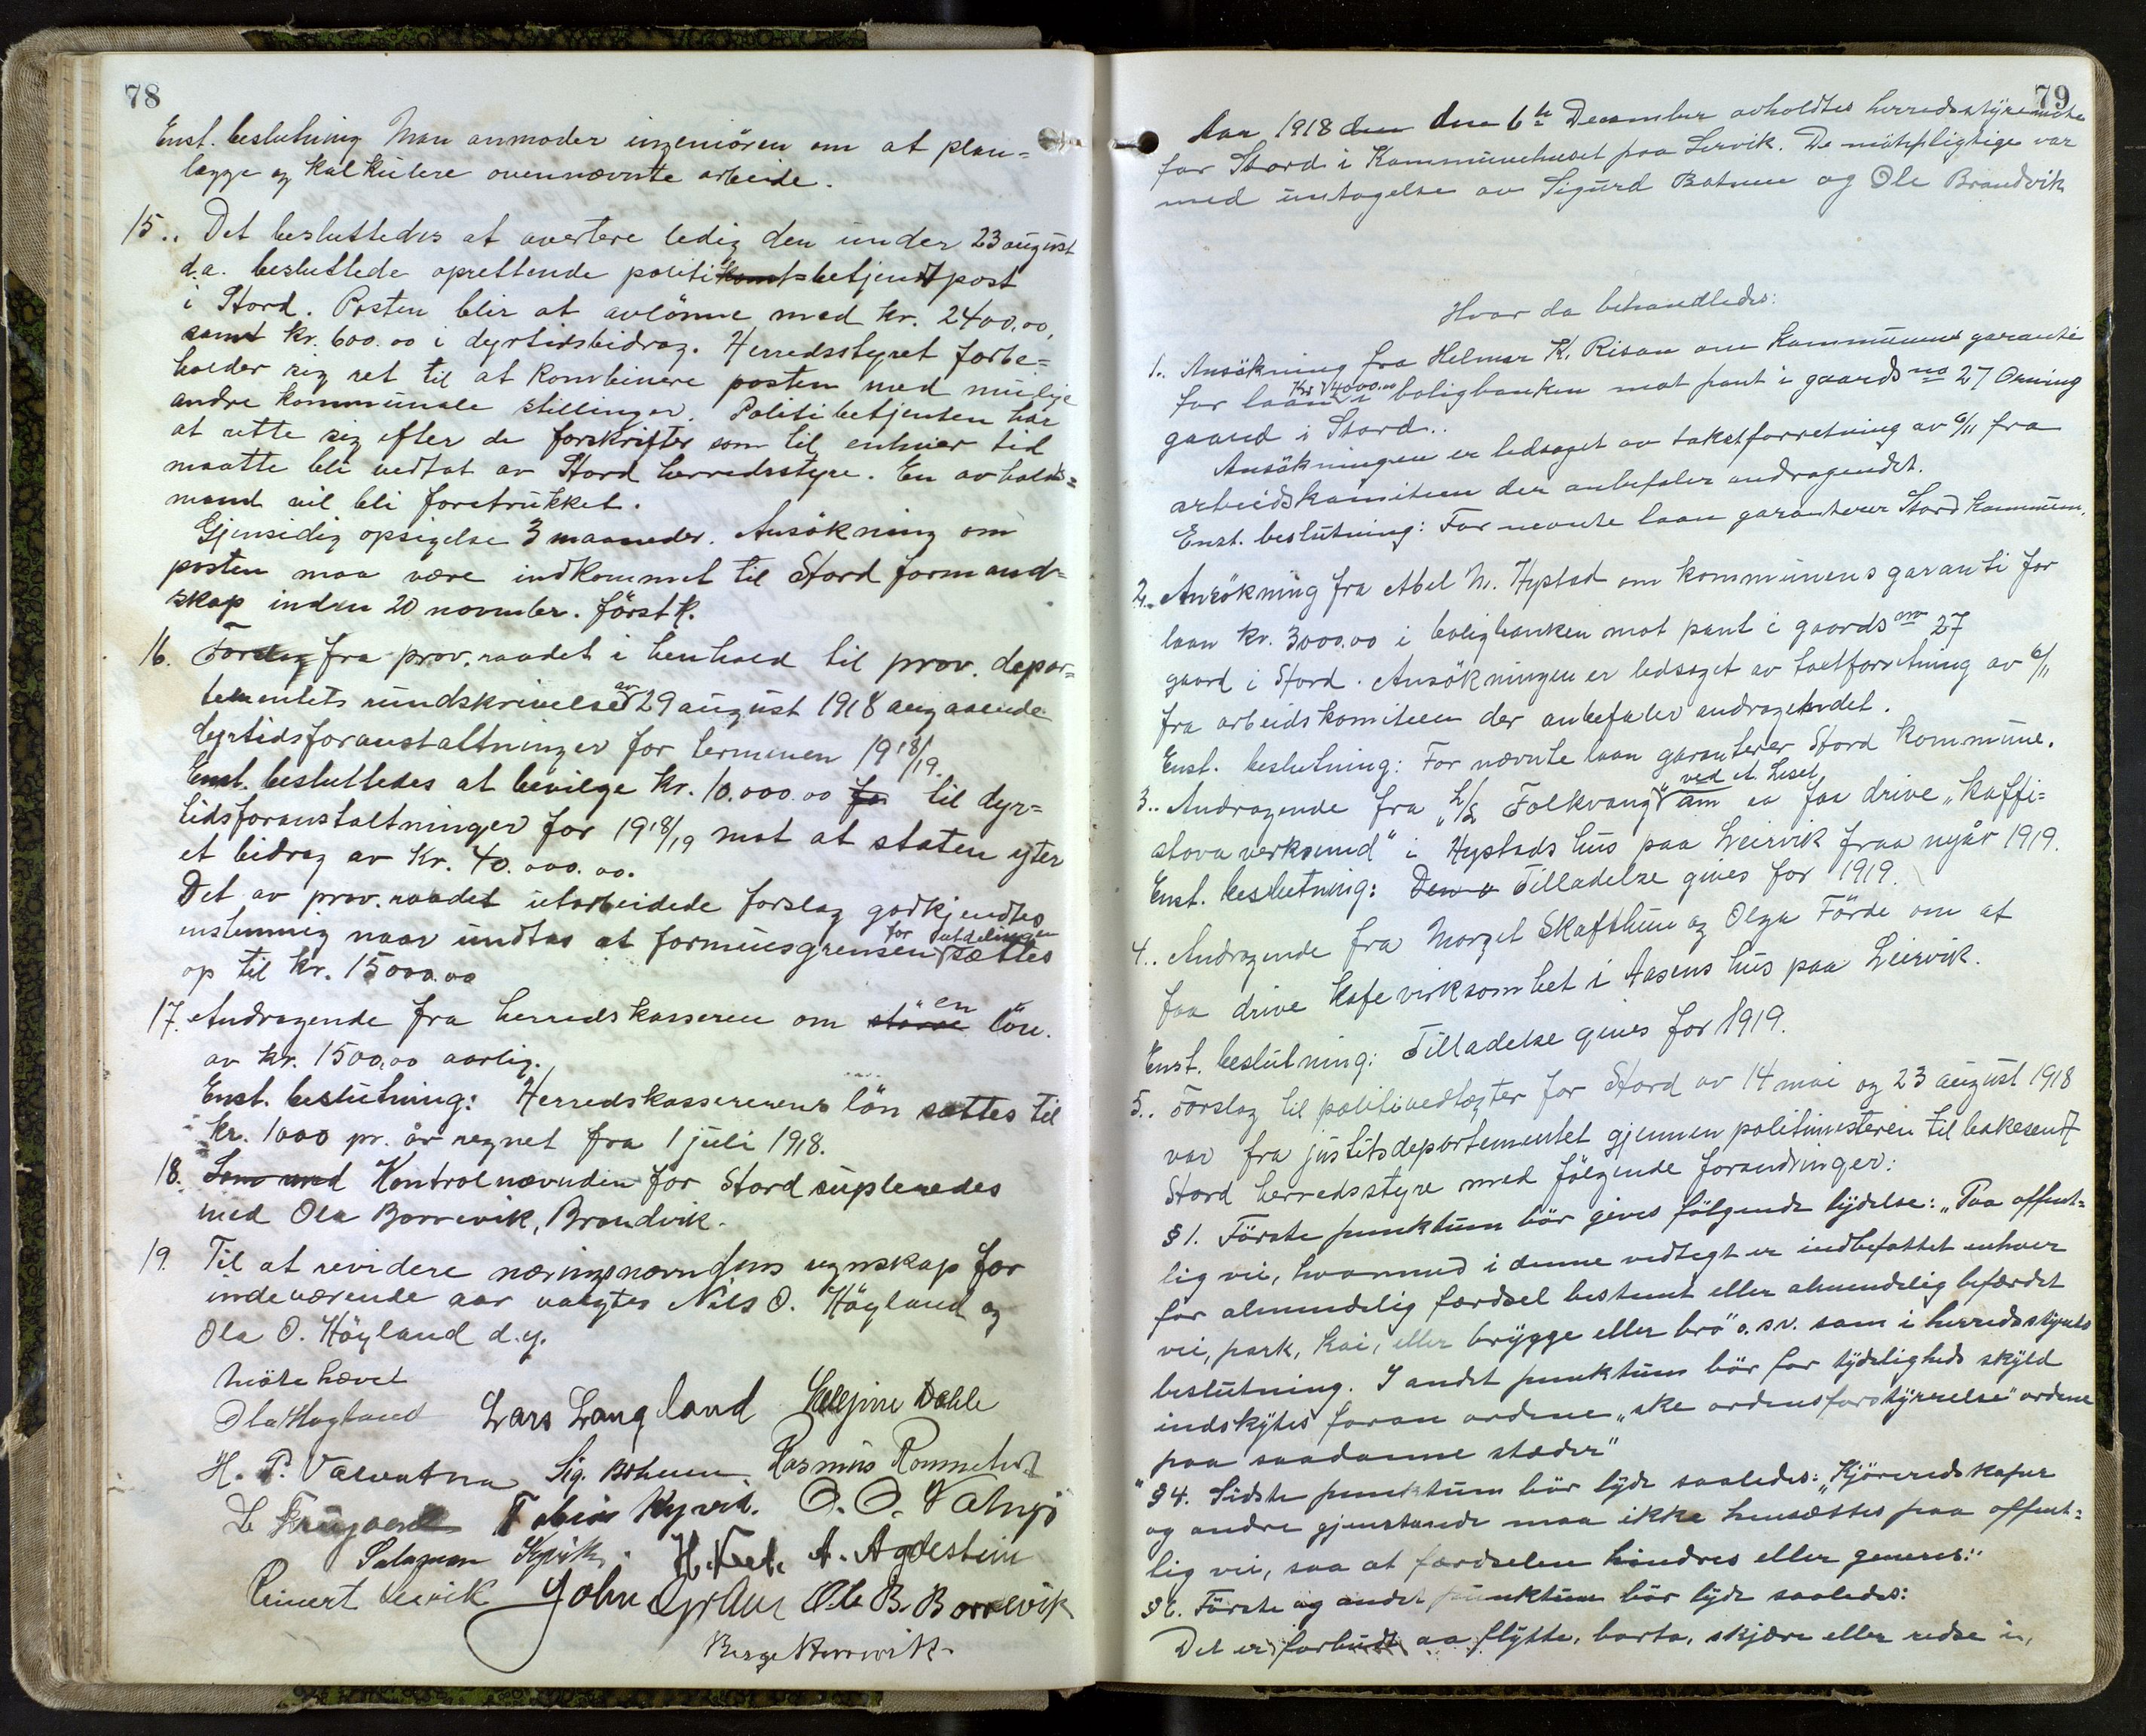 78
Enst. beslutning Man anmoder ingeniören om at plan=
lægge og kalkulere ovennævnte arbeide.
15.. Det besluttedes at avertere ledig den under 23 august
d.a. besluttede oprettende politi betjentpost
i Stord. Posten blir at avlönne med kr. 2400,00,
samt kr. 600.00 i dyrtidsbidrag. Herredsstyret forbe=
holder sig ret til at kombinere posten med mulige
andre kommunale stillinger. Politibetjenten har
at rette sig efter de forskrifter som til enhver tid
maatte bli vedtat av Stord herredsstyre. En avholds=
mand vil bli foretrukket.
Gjensidig opsigelse 3 maaneder. Ansökning om
posten maa være indkommet til Stord formand=
skap inden 20 november. förstk.
16. Forslag fra prov.raadet i henhold til prov. depar=
tementets rundskrivelse av 29 august 1918 angaaende
dyrtidsforanstaltninger for terminen 1918/19.
Enst. besluttedes at bevilge kr. 10.000.00 for til dyr=
tidsforanstaltninger for 1918/19 mot at staten yter
et bidrag av Kr. 40.000.00.
Det av prov.raadet utarbeidede forslag godkjendtes
enstemmig naar undtas at formuesgrensen for utdelingen sættes
op til kr. 15000.00
17. Andragende fra herredskasseren om större en lön.
av kr. 1500,00 aarlig.
Enst. beslutning: Herredskassererens lön sættes til
kr. 1000 pr. år regnet fra 1 juli 1918.
18. Kontrolnævnden for Stord supleredes
med Ola Borrevik, Brandvik.
19. Til at revidere næringsnævndens regnskap for
indeværende aar valgtes Nils O. Höyland og
Ola O. Höyland d.y.
Möte hævet
Ola Høyland Lars Langeland Dahle
H. P. Valvatna Sig. Botnen Rasmus Rommetvet
Tobias Kyvik. O. O. Vatnøi
Salamon Kyvik. A. Agdestein
Leirvik John Ole B. Borrevik
79
Aar 1918 den den 6te December avholdtes herredsstyremöte
for Stord i Kommunehuset paa Lervik. De mötepligtige var
med untagelse av Sigurd Botnen og Ole Brandvik
Hvor da behandledes:
1.. Ansökning fra Helmer K. Risan om kommunens garanti
for laan Kr 4000.00 i boligbanken mot pant i gaards no 27 Orning
gaard i Stord..
Ansökningen er ledsaget av takstforretning av 6/11 fra
arbeidskomiteen der anbefaler andragendet.
Enst. beslutning: For nevnte laan garanterer Stord Kommune.
2.. Ansökning fra Abel M. Hystad om kommunens garanti for
laan kr. 3000.00 i boligbanken mot pant i gaards no 27
gaard i Stord. Ansökningen er ledsaget av takstforretning av 6/11
fra arbeidskomiteen der anbefaler andragendet.
Enst. beslutning: For nævnte laan garanterer Stord kommune.
3.. Andragende fra "L/L Folkvang" ved A. Liset am aa faa drive "kaffi=
stova verksemd" i Hystads hus paa Leirvik fraa nyår 1919.
Enst. beslutning: Tilladelse gives for 1919.
4.. Andragende fra Marget Skafthun og Olga Förde om at
faa drive kafevirksomhet i Aasens hus paa Leirvik.
Enst. beslutning: Tilladelse gives for 1919.
5.. Forslag til politivedtægter for Stord av 14 mai og 23 august 1918
var fra justitsdepartementet gjennem politimesteren tilbakesendt
Stord herredsstyre med fölgende forandringer:
§ 1. Förste punktum bör gives fölgende lydelse: "Paa offent=
lig vei, hvormed i denne vedtegt er indbefattet enhver
for almindelig færdsel bestemt eller almindelig befærdet
vei, park, kai, eller brygge eller bro o.s.v. som i herredsstyrets
beslutning. I andet punktum bör for tydeligheds skyld
indskytes foran ordene "ske ordensforstyrrelse" ordene
paa saadanne stæder"
"§ 4. Sidste punktum bör lyde saaledes: "Kjöreredskaper
og andre gjenstande maa ikke hensættes paa offent=
lig vei, saa at færdselen hindres eller generes:"
§ 6. Förste og andet punktum bör lyde saaledes:
Det er forbudt aa flytte, borta, skjære eller redse i,